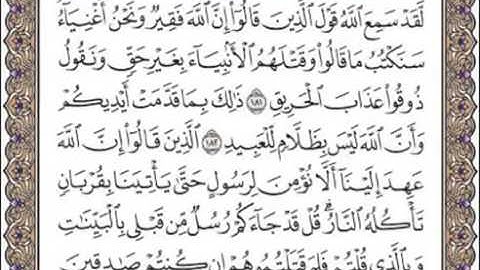 لَّقَدْ سَمِعَ ٱللَّهُ قَوْلَ ٱلَّذِينَ قَالُوٓا۟ إِنَّ ٱللَّهَ فَقِيرٌ وَنَحْنُ أَغْنِيَآءُ
سَنَكْتُبُ مَا قَالُوا۟ وَقَتْلَهُمُ ٱلْأَنۢبِيَآءَ بِغَيْرِ حَقٍّ وَنَقُولُ
ذُوقُوا۟ عَذَابَ ٱلْحَرِيقِ ١٨١ ذَٰلِكَ بِمَا قَدَّمَتْ أَيْدِيكُمْ
وَأَنَّ ٱللَّهَ لَيْسَ بِظَلَّامٍ لِّلْعَبِيدِ ١٨٢ ٱلَّذِينَ قَالُوٓا۟ إِنَّ ٱللَّهَ
عَهِدَ إِلَيْنَآ أَلَّا نُؤْمِنَ لِرَسُولٍ حَتَّىٰ يَأْتِيَنَا بِقُرْبَانٍ
تَأْكُلُهُ ٱلنَّارُ ۗ قُلْ قَدْ جَآءَكُمْ رُسُلٌ مِّن قَبْلِى بِٱلْبَيِّنَٰتِ
وَبِٱلَّذِى قُلْتُمْ فَلِمَ قَتَلْتُمُوهُمْ إِن كُنتُمْ صَٰدِقِينَ